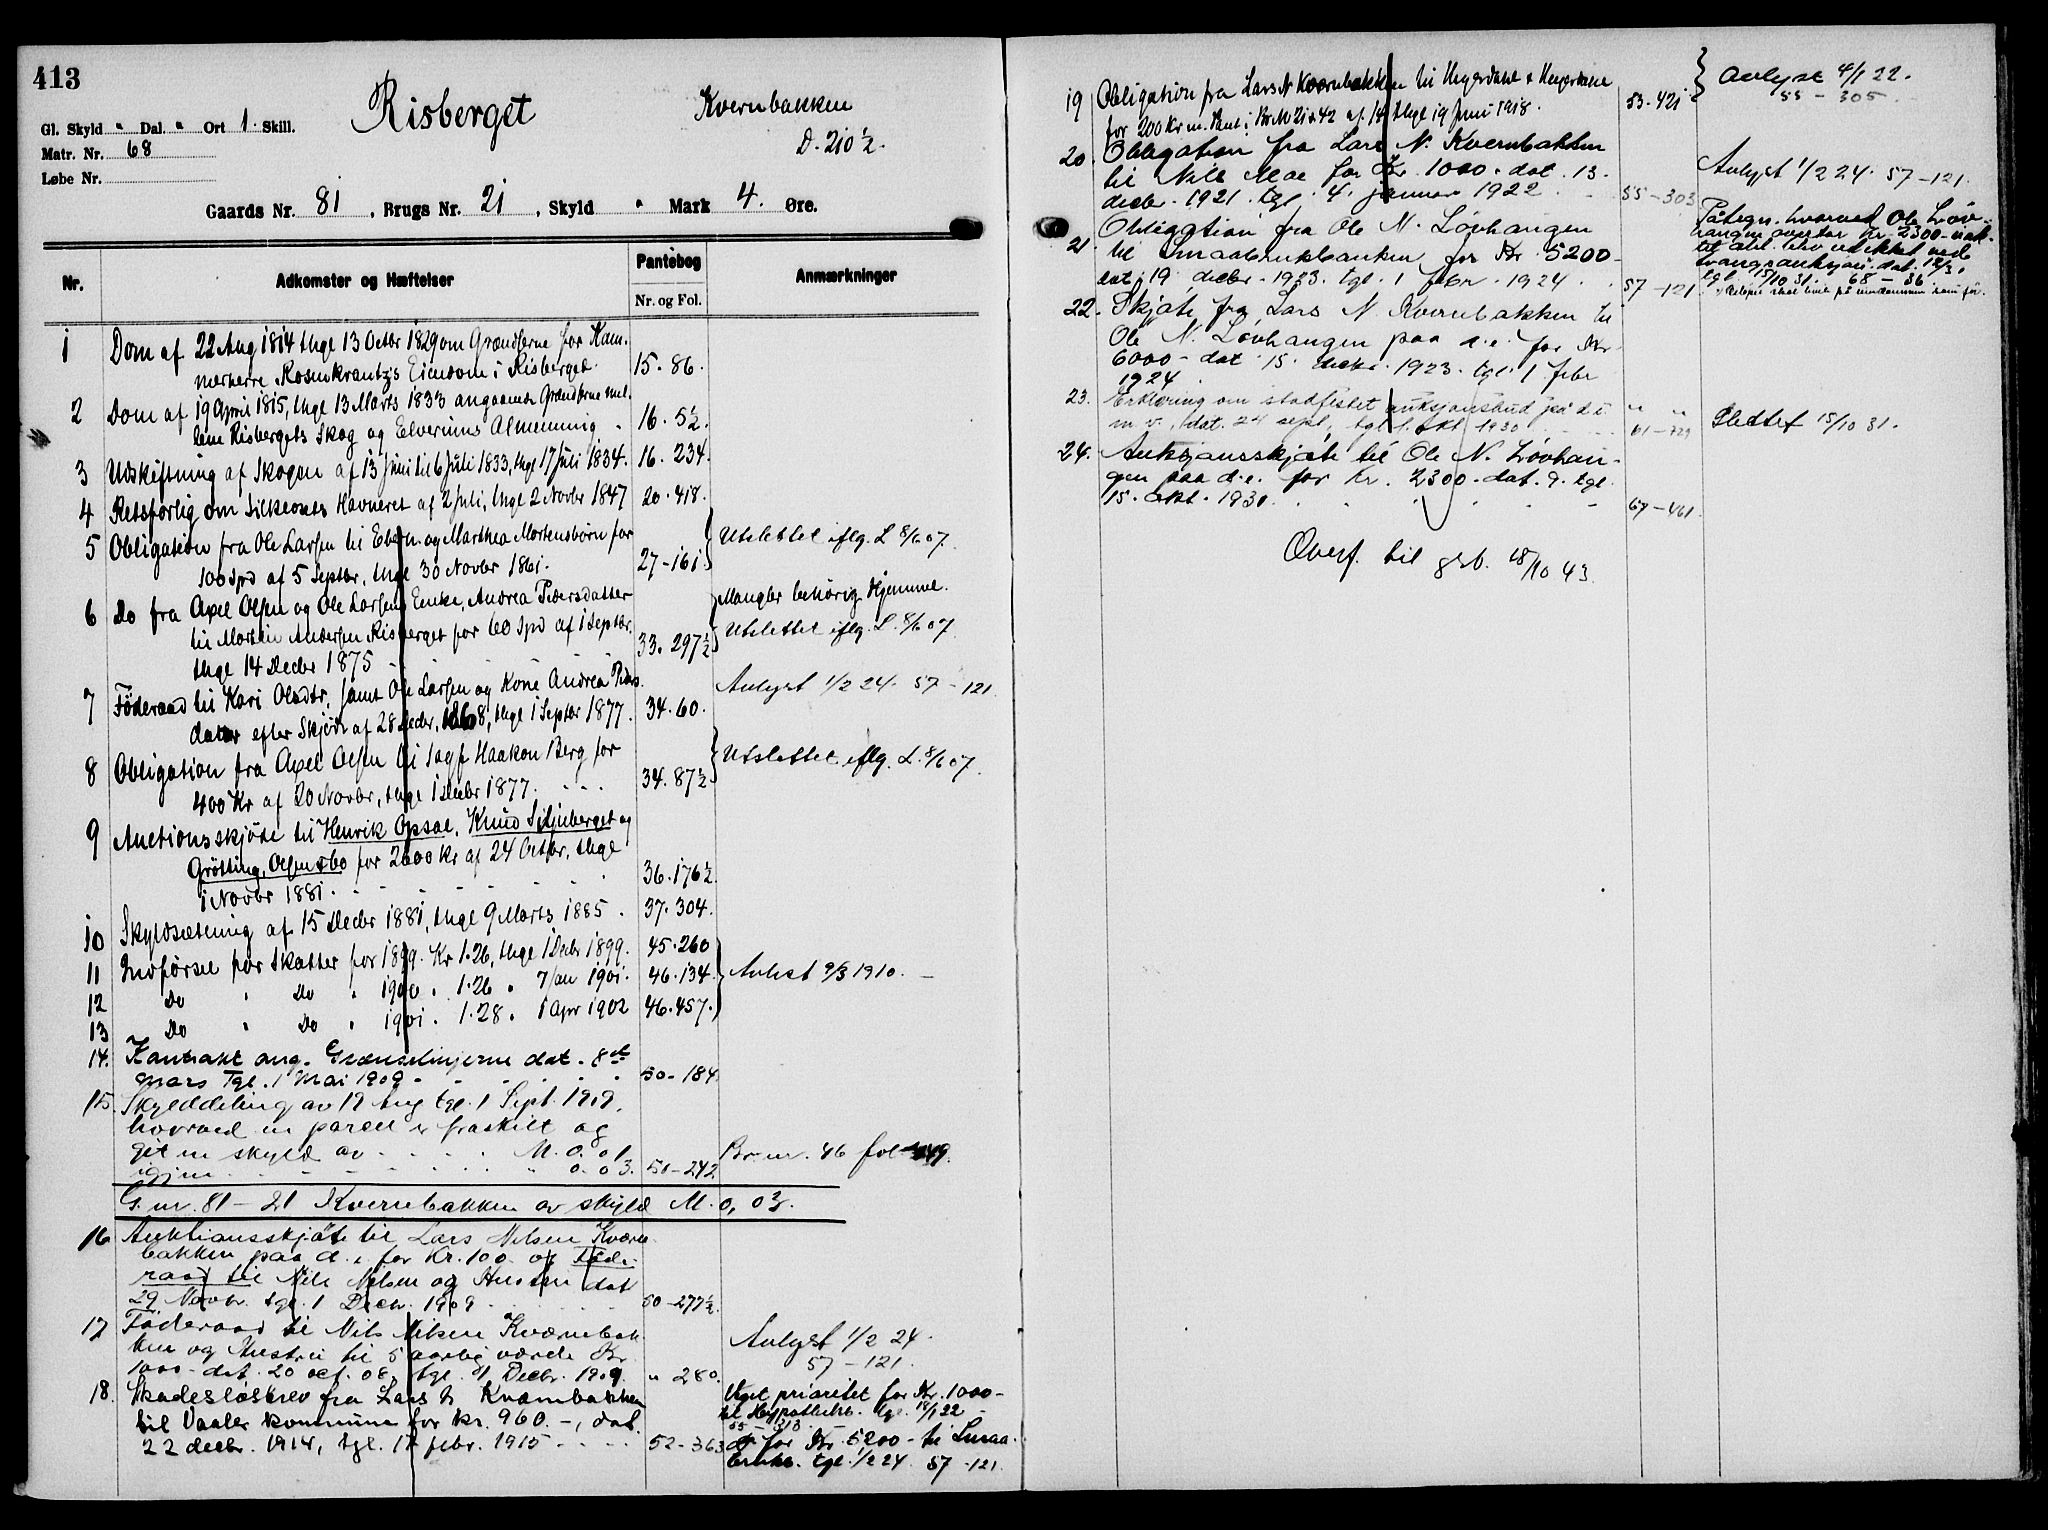 413
Risberget
Kvernbakken
D. 210 ½.
Gl. Skyld " Dal. " Ort 1. Skill.
Matr. Nr. 68
Løbe Nr.
Gaards Nr. 81, Brugs Nr. 21, Skyld " Mark 4. Øre.
Nr. Adkomster og Hæftelser Pantebog Anmærkninger
Nr. og Fol.
1 Dom af 22 Aug 1814 thgl 13 Octbr 1829 om Grændserne for Kam-
merherre Rosenkrantz's Eiendom i Risberget. 15. 86.
2 Dom af 19 April 1815, thgl 13 Marts 1833 angaaende Grændserne mel-
lem Risbergets Skog og Elverums Almenning . 16. 5½.
3 Udskiftning af Skogen af 13 Juni til 6 Juli 1833, thgl 17 Juli 1834. 16. 234.
4 Retsforlig om Silkeosnes Havneret af 2 Juli, thgl 2 Novbr 1847 20. 418.
5 Obligation fra Ole Larsen til og Marthea Mortensbørn for
100 Spd af 5 Septbr, thgl 30 Novbr 1861. 27-161. Utslettet iflg. L 8/6 07.
6 Do fra Axel Olsen og Ole Larsens Enke, Andrea Pedersdatter Mangler behørig Hjemmel.
til Morten Andersen Risberget for 60 Spd af 1 Septbr. Utslettet iflg. L. 8/6 07.
thgl 14 Decbr 1875 33. 297½
7 Føderaad til Kari Olsdtr, samt Ole Larsen og Kone Andrea Peders- Avlyst 1/2 24. 57-121.
datter efter Skjøde af 28 Decbr, 1868, thgl 1 Septbr 1877. 34. 60.
8 Obligation fra Axel Olsen til Sagf Haakon Berg for Utslettet iflg. L. 8/6 07.
400 Kr af 20 Novbr, thgl 1 Decbr 1877. 34. 87½
9 Auctionsskjøde til Henrik Opsal, Knud Siljuberget og
Grøtting, Olsen & Co for 2600 Kr af 24 Octbr, thgl
1 Novbr 1881. 36. 176½.
10 Skyldsætning af 15 Decbr 1881, thgl 9 Marts 1885. 37. 304.
11 Indførsel for Skatter for 1899. Kr 1.26, thgl 1 Decbr 1899. 45. 260
12 Do " Do " 1900 " 1.26 " 7 Jan 1901. 46. 134. Avlest 9/3 1910. -
13 Do " Do " 1901. " 1.28 " 1 Apr 1902 46. 457.
14. Kontrakt ang. Grænselinjerne dat. 8de
mars Tgl. 1 Mai 1909. 50-184.
15. Skylddeling av 19 Aug tgl. 1 Sept. 1909,
hvorved en parcel er fraskilt og
git en skyld av M. 0.01 Br. nr. 46 fol 449.
igjen " 0.03. 50-242.
G. nr. 81 - 21 Kvernbakken av skyld M. 0,03.
16 Auktionsskjøte til Lars Nilsen Kværn-
bakken paa d. e. for Kr. 100 og Føde-
raad til Nils Nilsen og Hustru dat
29 Novbr. tgl. 1 Decbr. 1909 50-277½.
17 Føderaad til Nils Nilsen Kværnbak- Avlyst 1/2 24.
ken og Hustru til 5 aarlig værdi Kr 57-121.
1000 - dat. 20 oct. 08, tgl. 1 Decbr. 1909. " 280.
18. Skadesløsbrev fra Lars N. Kværnbakken Veget prioritet for Kr. 1000-
til Vaaler kommune for kr. 960.-, dat. til Hypothekb. tgl. 18/1 22
22 decbr. 1914, tgl. 17 febr. 1915 52-363 55-313
do for Kr. 5200 - til Smaa-
brukb. tgl. 1/2 24. 57-121.
19 Obligation fra Lars N Kværnbakken til Heyerdahl & Heyerdahl Avlyst 4/1 22.
for 200 Kr m. Pant i Br. No 21 & 42 af 14 thgl 19 Juni 1918. 53-421 55-305.
20. Obligation fra Lars N. Kvernbakken Avlyst 1/2 24. 57-121.
til Nils Moe for Kr. 1000 - dat. 13.
decbr. 1921. tgl. 4. januar 1922. 55-303
21. Obligation fra Ole N. Løvhaugen Påtegn. hvorved Ole Løv-
til Smaabrukbanken for Kr 5200- haugen overtar Kr. 2300 -
dat. 19. decbr. 1923. tgl. 1 febr. 1924. 57-121 tvangsauksjon. dat. 12/3.
tgl. 15/10 31. 68-36.
22. Skjøte fra Lars N. Kvernbakken til
Ole N. Løvhaugen paa d.e. for Kr
6000 - dat 15. decbr. 1923. tgl. 1 febr
1924 " "
23. Erklæring om stadfestet auksjonsbud på d e Slettet 15/10 31.
m v. dat. 24 sept, tgl 1. okt. 1930 61-729
24. Auksjonsskjøte til Ole N. Løvhau-
gen paa d.e. for Kr. 2300 - dat. 9. tgl.
15. okt. 1930. 67-461.
Overf. til grb. 18/10 43.